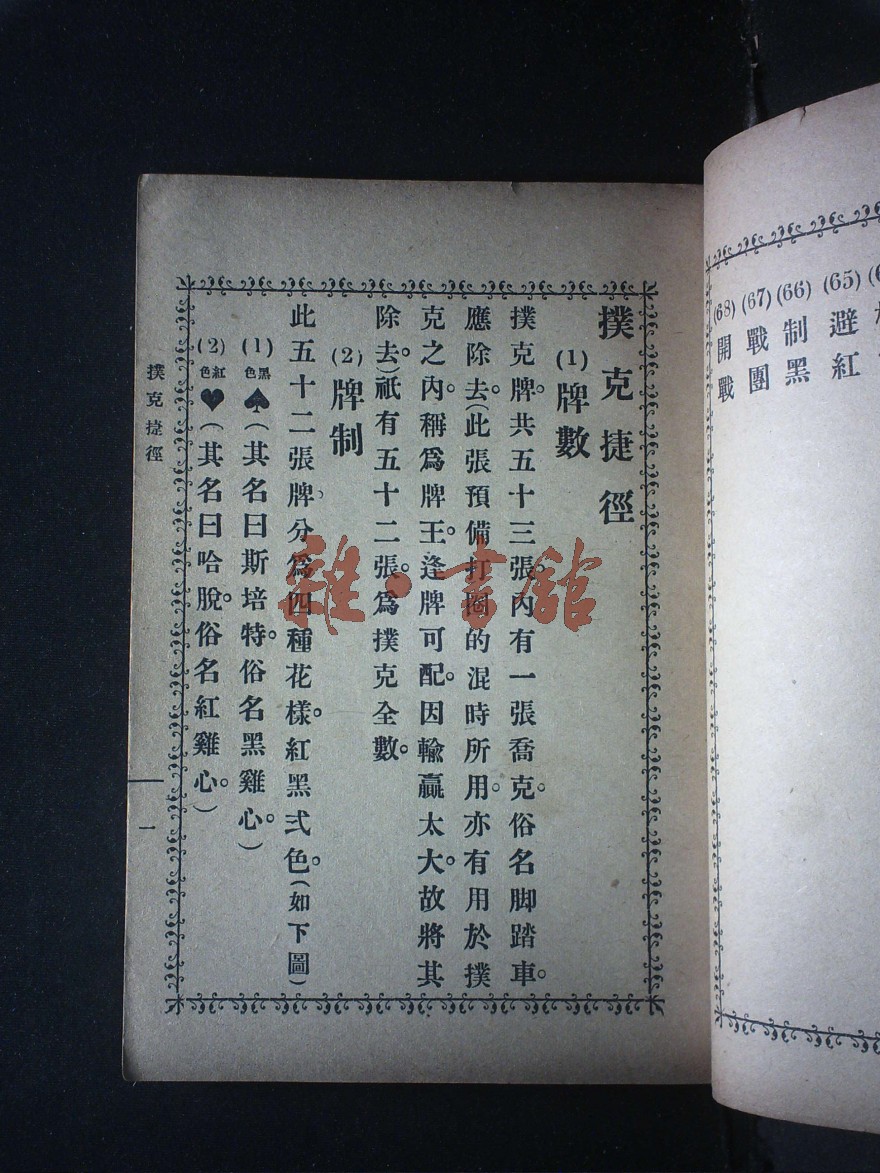 撲克捷徑
(1)牌數
撲克牌。共五十三張。內有一張喬克。俗名脚踏車。
應除去。(此張預備打圈的混時所用。亦有用於撲
克之內。稱爲牌王。逢牌可配。因輸贏太大。故將其
除去。)祇有五十二張。爲撲克全數。
(2)牌制
此五十二張牌、分爲四種花樣。紅黑弍色。(如下圖)
(1)黑色♠(其名曰斯培特。俗名黑雞心。)
(2)紅色♥(其名曰哈脫。俗名紅雞心。)
撲克捷徑
一
(65)避紅
(66)制黑
(67)戰團
(68)開戰
雜·書館